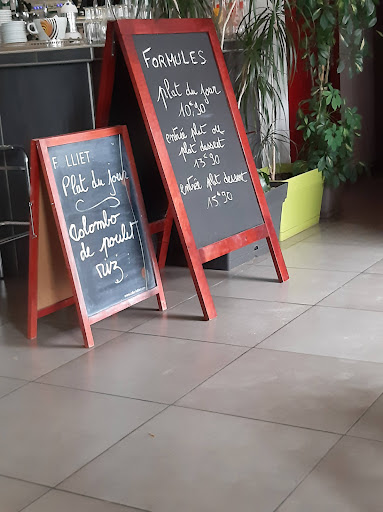 FORMULES
plat du jour
10€90
entrée plat ou
plat dessert
13€90
entrée plat dessert
15€90
F LLIET
Plat du jour
Colombo
de poulet
riz